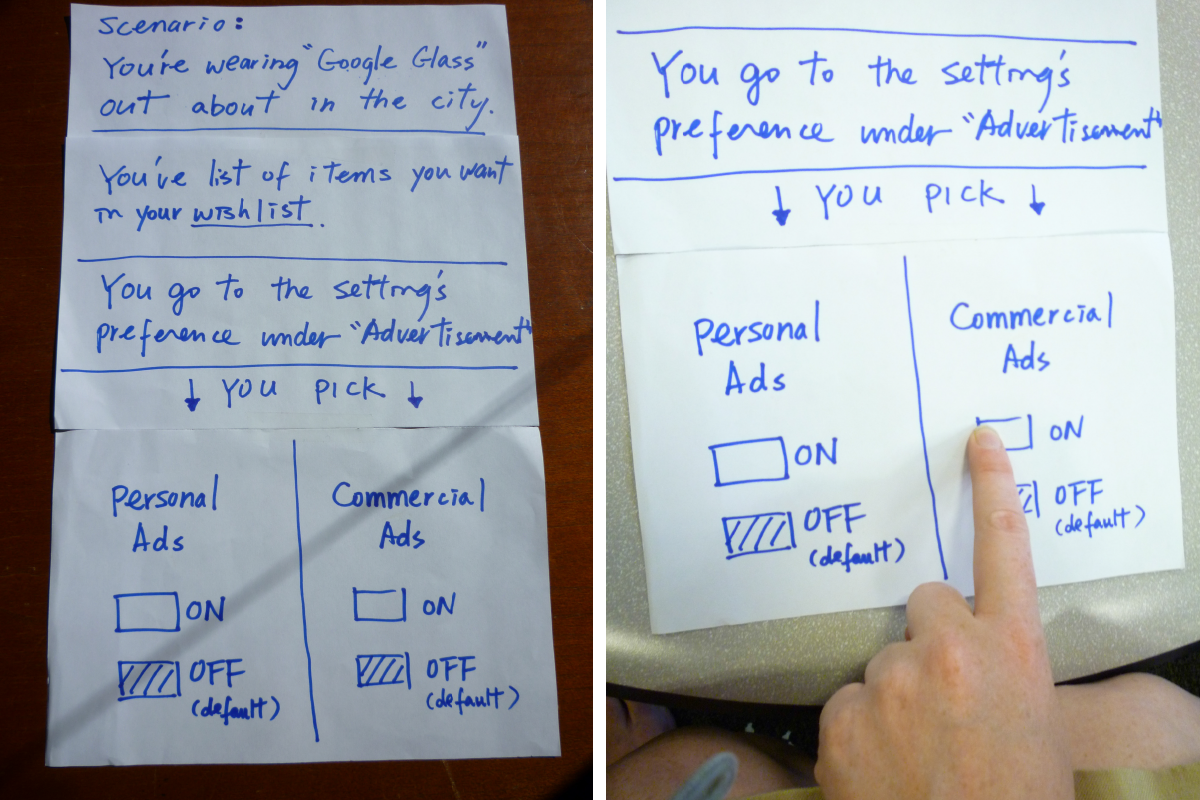 Scenario:
You're wearing "Google Glass"
out about in the city.
You've list of items you want
in your wishlist.
You go to the setting's
preference under "Advertisement"
↓ YOU PICK ↓
Personal
Ads
ON
OFF
(default)
Commercial
Ads
ON
OFF
(default)
You go to the setting's
preference under "Advertisement"
↓ YOU PICK ↓
Personal
Ads
ON
OFF
(default)
Commercial
Ads
ON
OFF
(default)